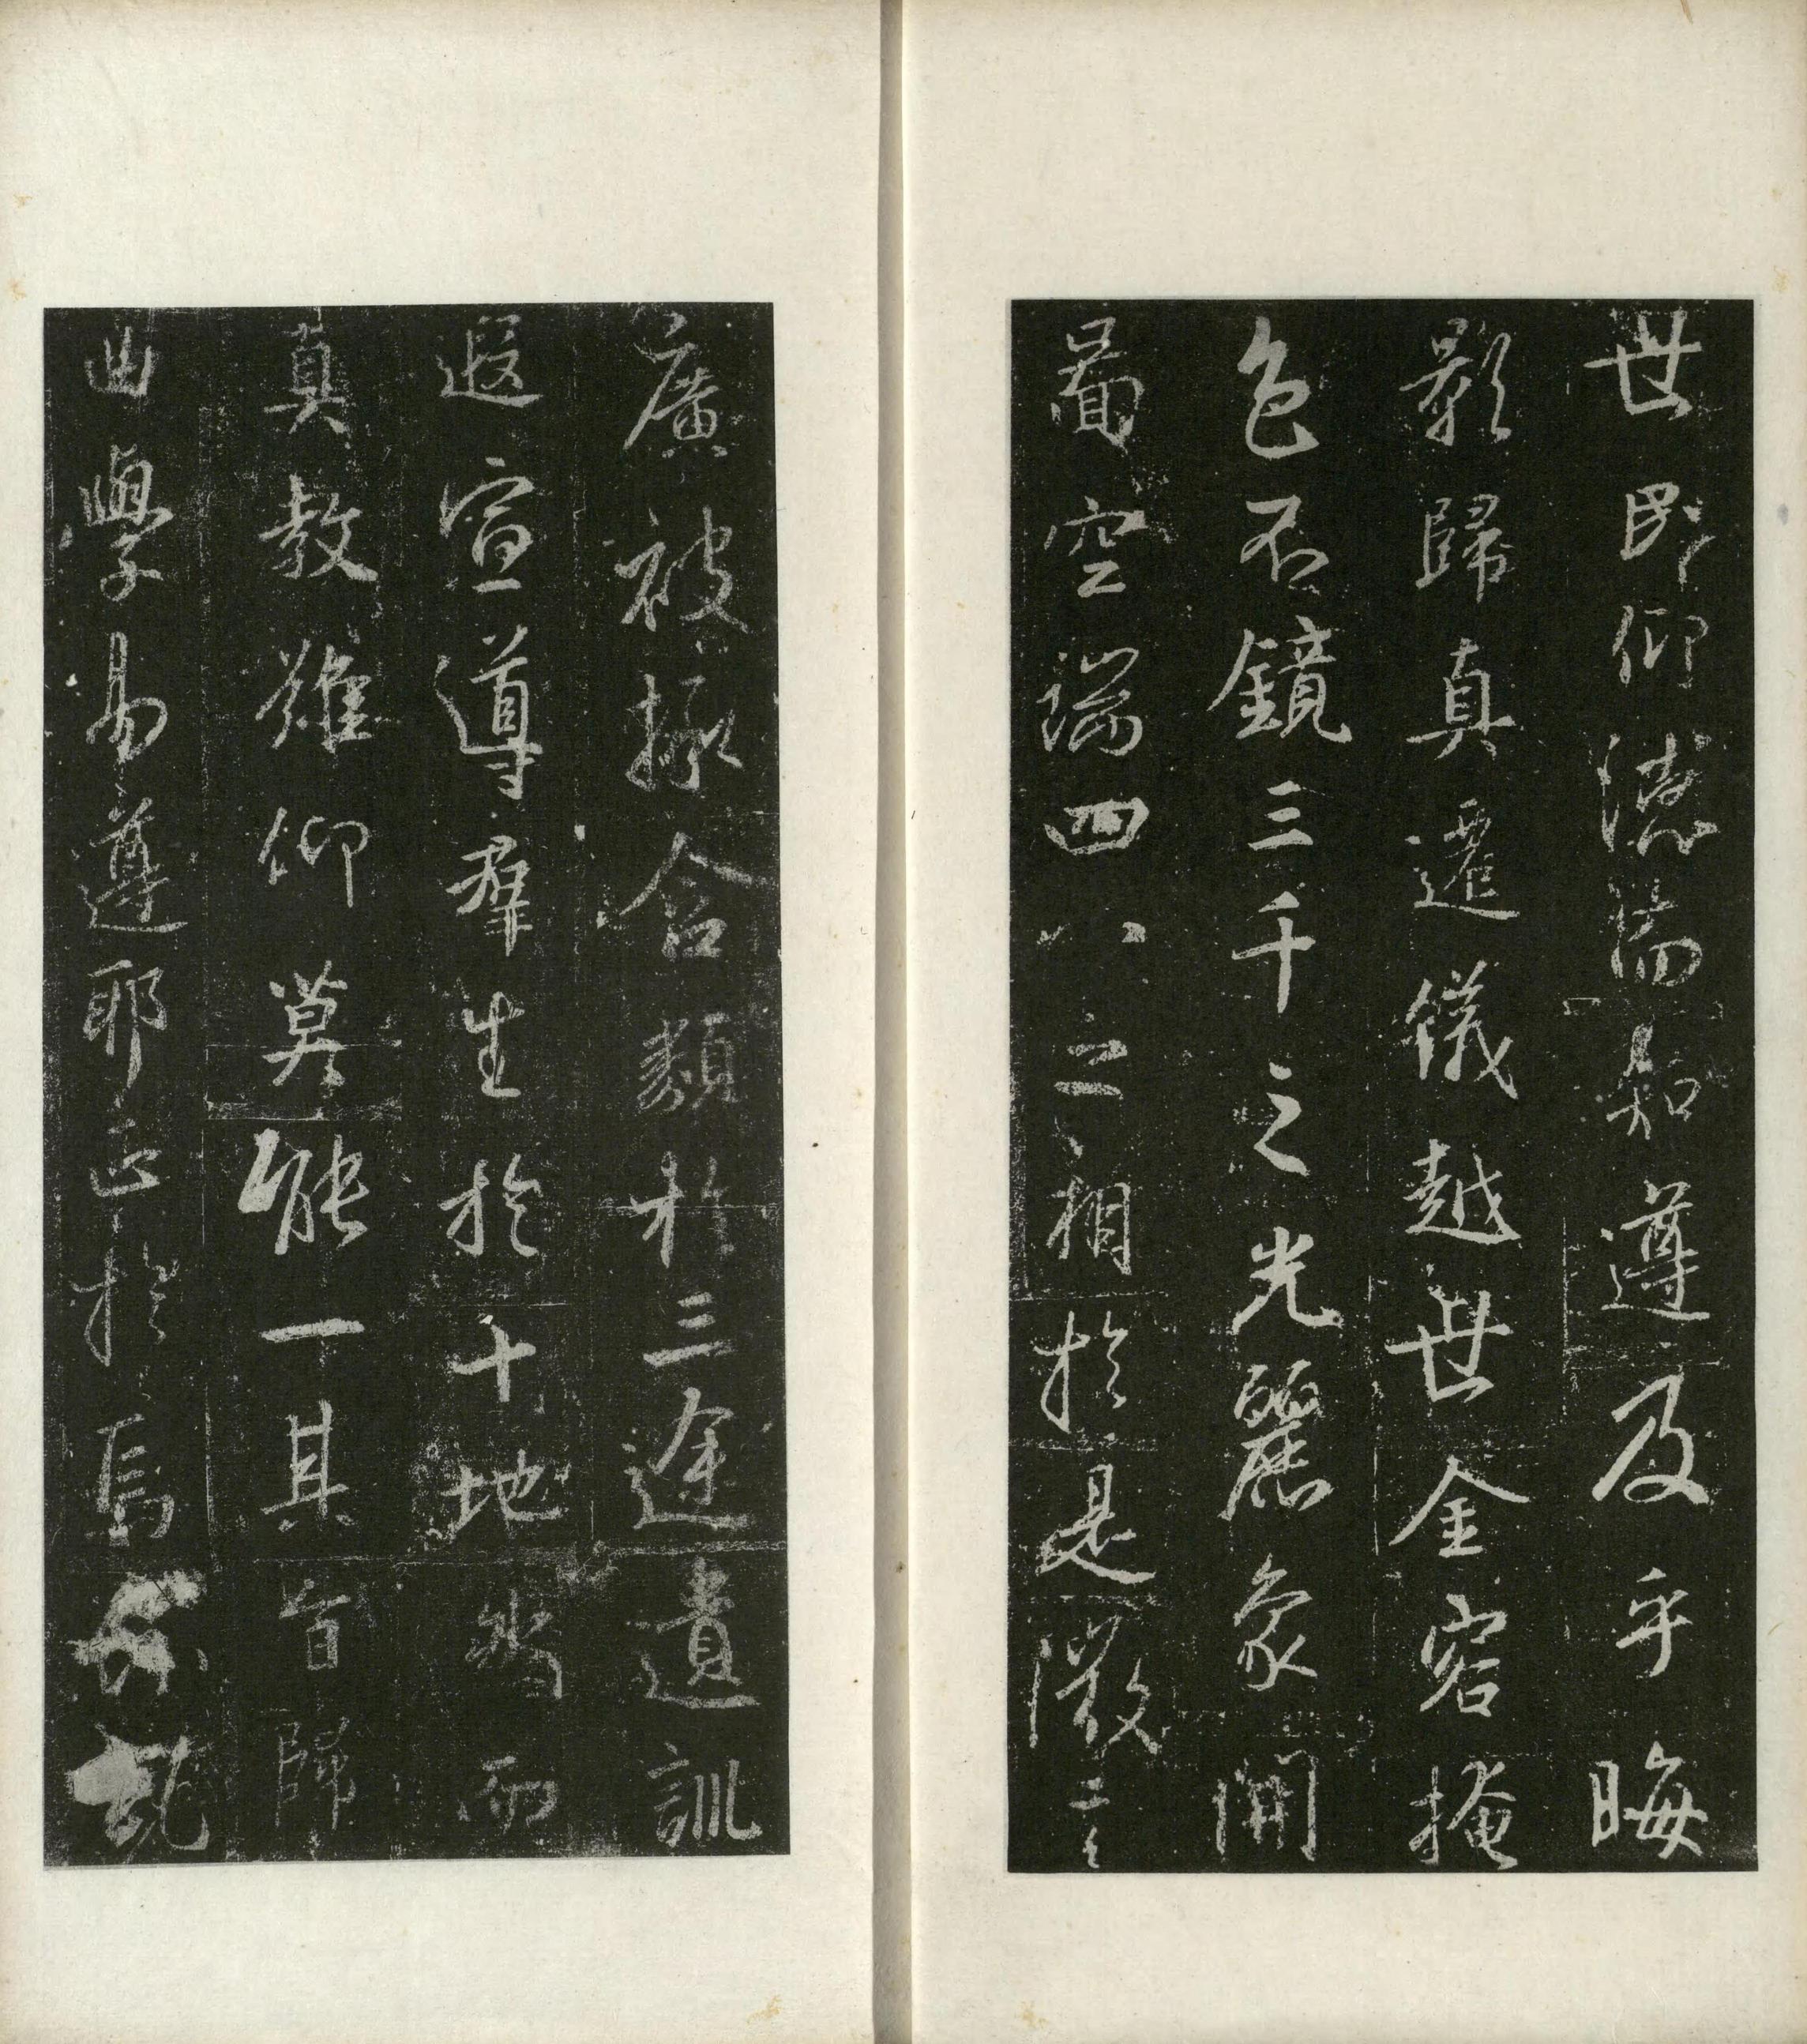 世民仰德而知遵及乎晦
影歸真遷儀越世金容掩
色不鏡三千之光麗象開
啚空端四八之相於是微言
廣被拯含類於三途遺訓
遐宣導群生於十地然而
真教難仰莫能一其旨歸
曲學易遵耶正於焉